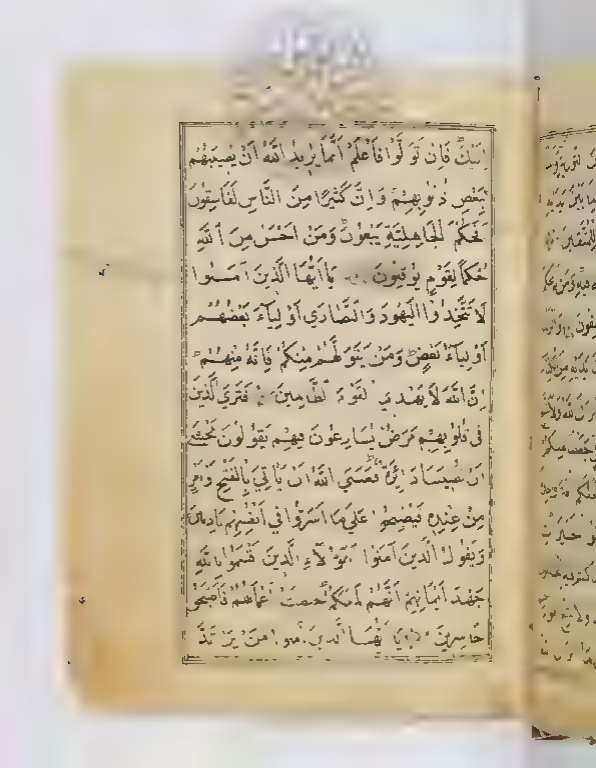 اِلَيْكَ فَاِنْ تَوَلَّوْا فَاعْلَمْ اَنَّمَا يُرِيدُ اللّٰهُ اَنْ يُصِيبَهُمْ
بِبَعْضِ ذُنُوبِهِمْ وَاِنَّ كَثِيرًا مِنَ النَّاسِ لَفَاسِقُونَ
اَفَحُكْمَ الْجَاهِلِيَّةِ يَبْغُونَ وَمَنْ اَحْسَنُ مِنَ اللّٰهِ
حُكْمًا لِقَوْمٍ يُوقِنُونَ يَا اَيُّهَا الَّذِينَ آمَنُوا
لَا تَتَّخِذُوا الْيَهُودَ وَالنَّصَارَى اَوْلِيَاءَ بَعْضُهُمْ
اَوْلِيَاءُ بَعْضٍ وَمَنْ يَتَوَلَّهُمْ مِنْكُمْ فَاِنَّهُ مِنْهُمْ
اِنَّ اللّٰهَ لَا يَهْدِي الْقَوْمَ الظَّالِمِينَ فَتَرَى الَّذِينَ
فِي قُلُوبِهِمْ مَرَضٌ يُسَارِعُونَ فِيهِمْ يَقُولُونَ نَخْشَى
اَنْ تُصِيبَنَا دَائِرَةٌ فَعَسَى اللّٰهُ اَنْ يَأْتِيَ بِالْفَتْحِ اَوْ اَمْرٍ
مِنْ عِنْدِهِ فَيُصْبِحُوا عَلَى مَا اَسَرُّوا فِي اَنْفُسِهِمْ نَادِمِينَ
وَيَقُولُ الَّذِينَ آمَنُوا اَهٰؤُلَاءِ الَّذِينَ اَقْسَمُوا بِاللّٰهِ
جَهْدَ اَيْمَانِهِمْ اِنَّهُمْ لَمَعَكُمْ حَبِطَتْ اَعْمَالُهُمْ فَاَصْبَحُوا
خَاسِرِينَ يَا اَيُّهَا الَّذِينَ آمَنُوا مَنْ يَرْتَدَّ